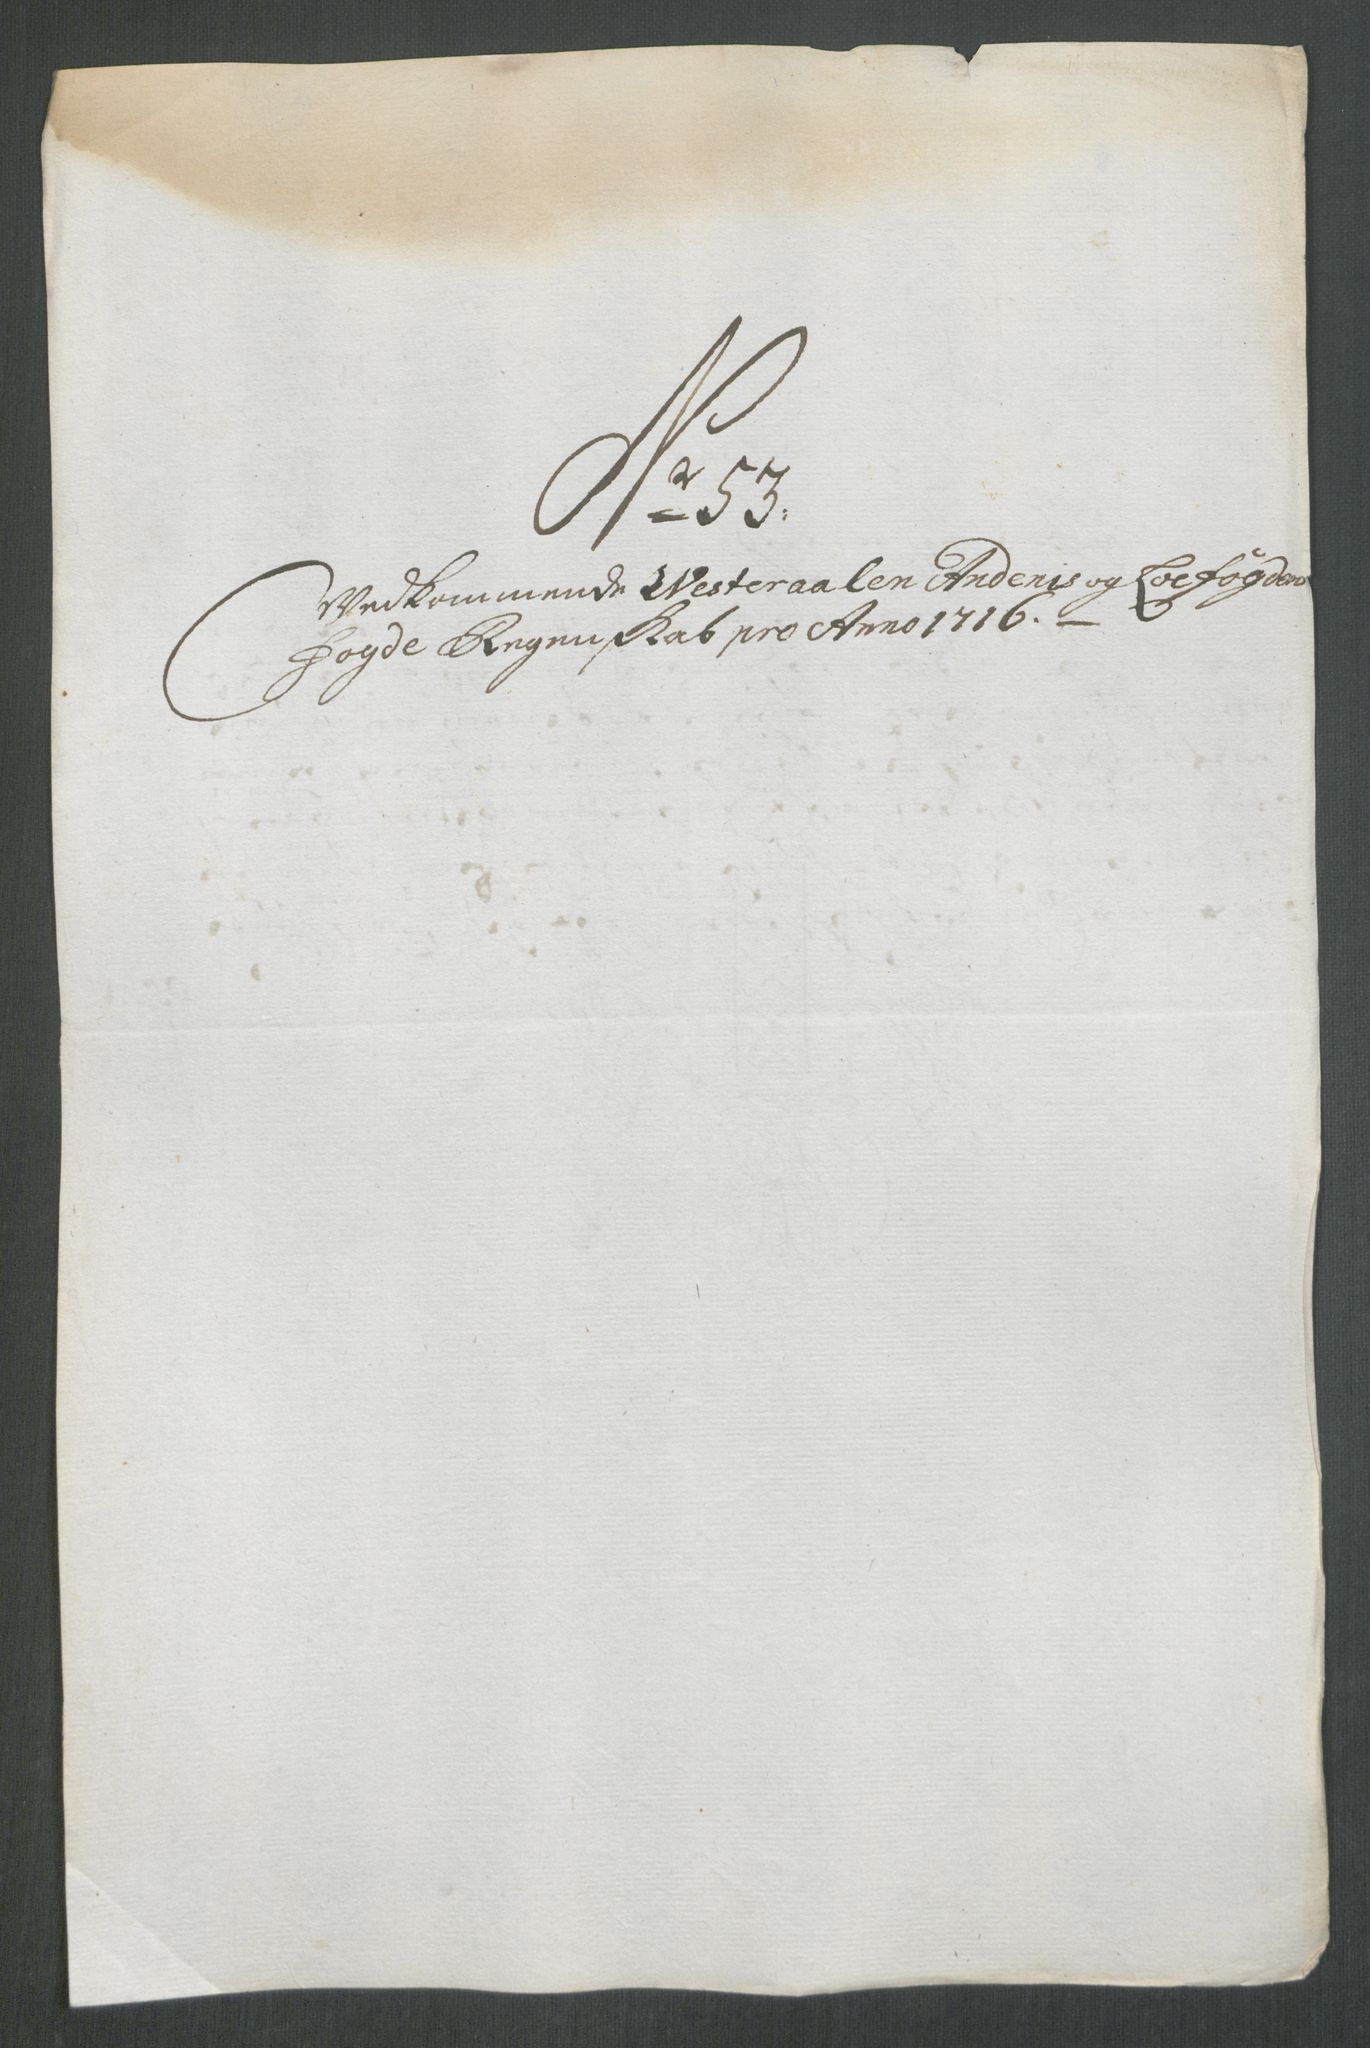 No 53.
Vedkommende Westeraalen Andenis og Loefogdens
fogde Regenskab pro Anno 1716.